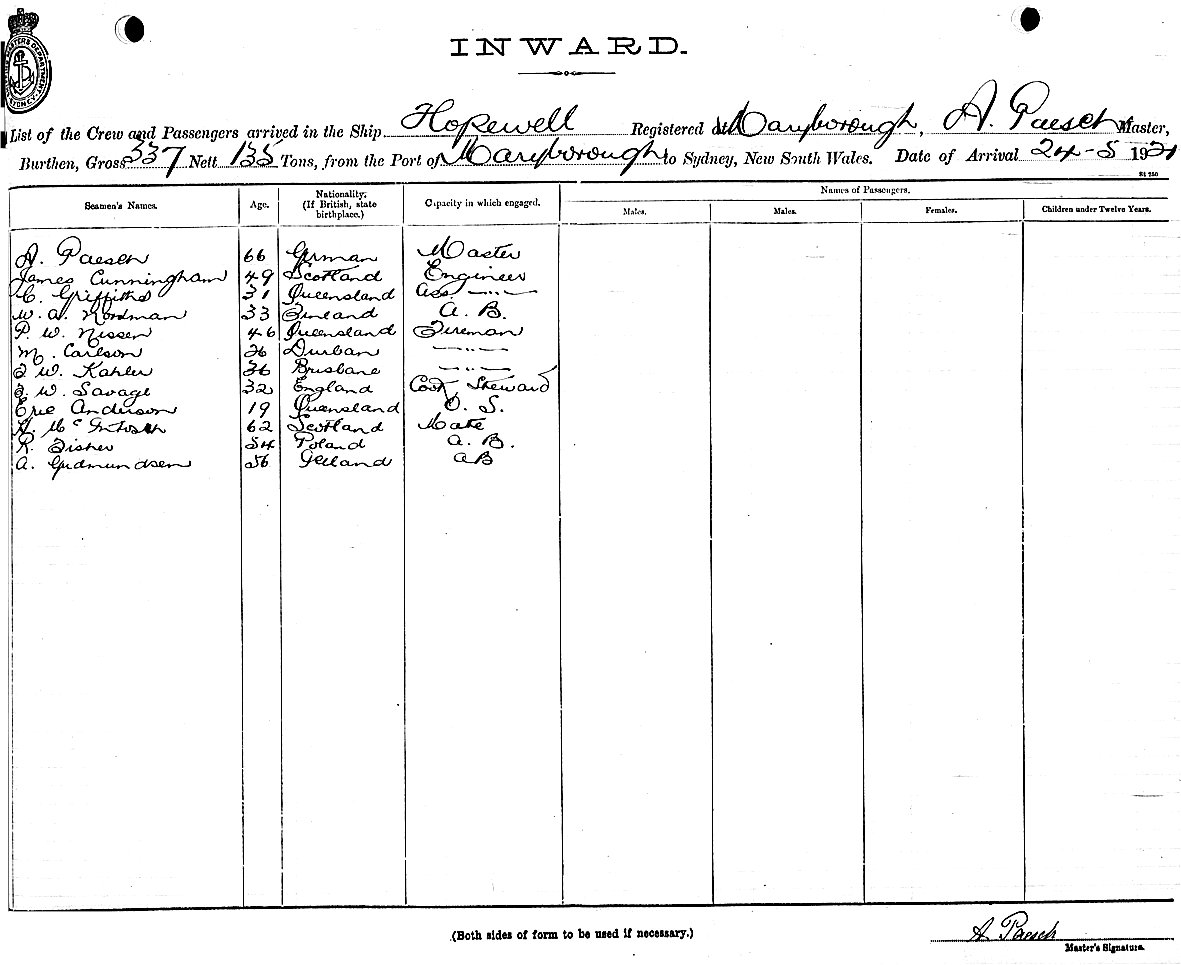 INWARD.
List of the Crew and Passengers arrived in the Ship Hopewell Registered at Maryborough, A. Paesch Master,
Burthen, Gross 337 Nett 135 Tons, from the Port of Maryborough to Sydney, New South Wales. Date of Arrival 24-5 192
Seamen's Names. Age. Nationality. (If British, state birthplace.) Capacity in which engaged. Names of Passengers.
Males. Males. Females. Children under Twelve Years.
A. Paesch 66 German Master
James Cunningham 49 Scotland Engineer
C. Griffiths 31 Queensland Ass. —"—
W. A. Nordman 33 Finland A. B.
P. W. Nissen 46 Queensland Fireman
M. Carlson 26 Durban —"—
W. Kahler 36 Brisbane —"—
W. Savage 32 England Cook Steward
Eric Anderson 19 Queensland O. S.
H. McIntosh 62 Scotland Mate
R. Fisher 54 Poland A. B.
A. Gudmundsen 56 AB
(Both sides of form to be used if necessary.)
A Paesch
Master's Signature.